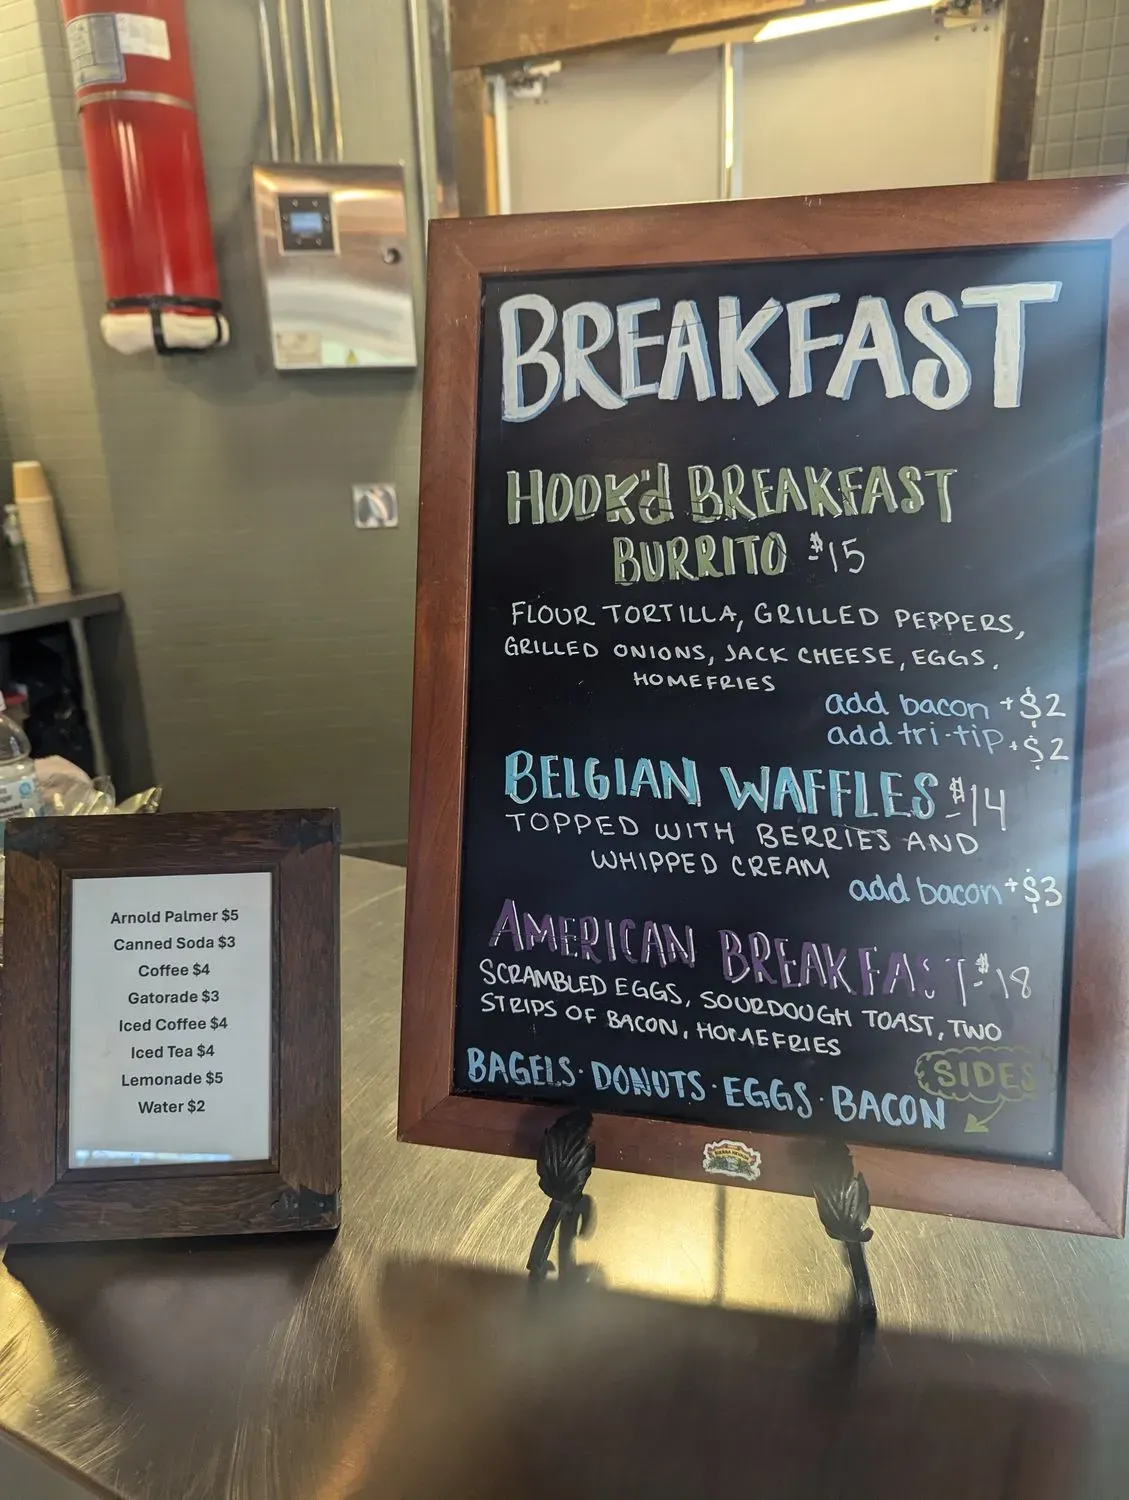 BREAKFAST
HOOK'd BREAKFAST
BURRITO $15
FLOUR TORTILLA, GRILLED PEPPERS,
GRILLED ONIONS, JACK CHEESE, EGGS,
HOMEFRIES
add bacon +$2
add tri-tip +$2
BELGIAN WAFFLES $14
TOPPED WITH BERRIES AND
WHIPPED CREAM
add bacon +$3
AMERICAN BREAKFAST $18
SCRAMBLED EGGS, SOURDOUGH TOAST, TWO
STRIPS OF BACON, HOMEFRIES
SIDES
BAGELS · DONUTS · EGGS · BACON
SIERRA NEVADA
Arnold Palmer $5
Canned Soda $3
Coffee $4
Gatorade $3
Iced Coffee $4
Iced Tea $4
Lemonade $5
Water $2